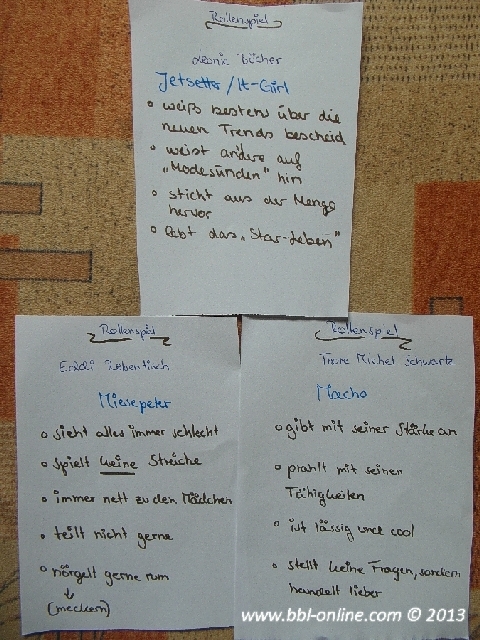 Rollenspiel
Leonie Bücher
Jetsetter / It-Girl
• weiß bestens über die
neuen Trends bescheid
• weist andere auf
„Modesünden" hin
• sticht aus der Menge
hervor
• lebt das „Star-Leben"
Rollenspiel
Miesepeter
• sieht alles immer schlecht
• spielt keine Streiche
• immer nett zu den Mädchen
• teilt nicht gerne
• nörgelt gerne rum
↓
(meckern)
Rollenspiel
Michel Schwartz
Macho
• gibt mit seiner Stärke an
• prahlt mit seinen
Fähigkeiten
• ist lässig und cool
• stellt keine Fragen, sondern
handelt lieber
www.bbl-online.com © 2013